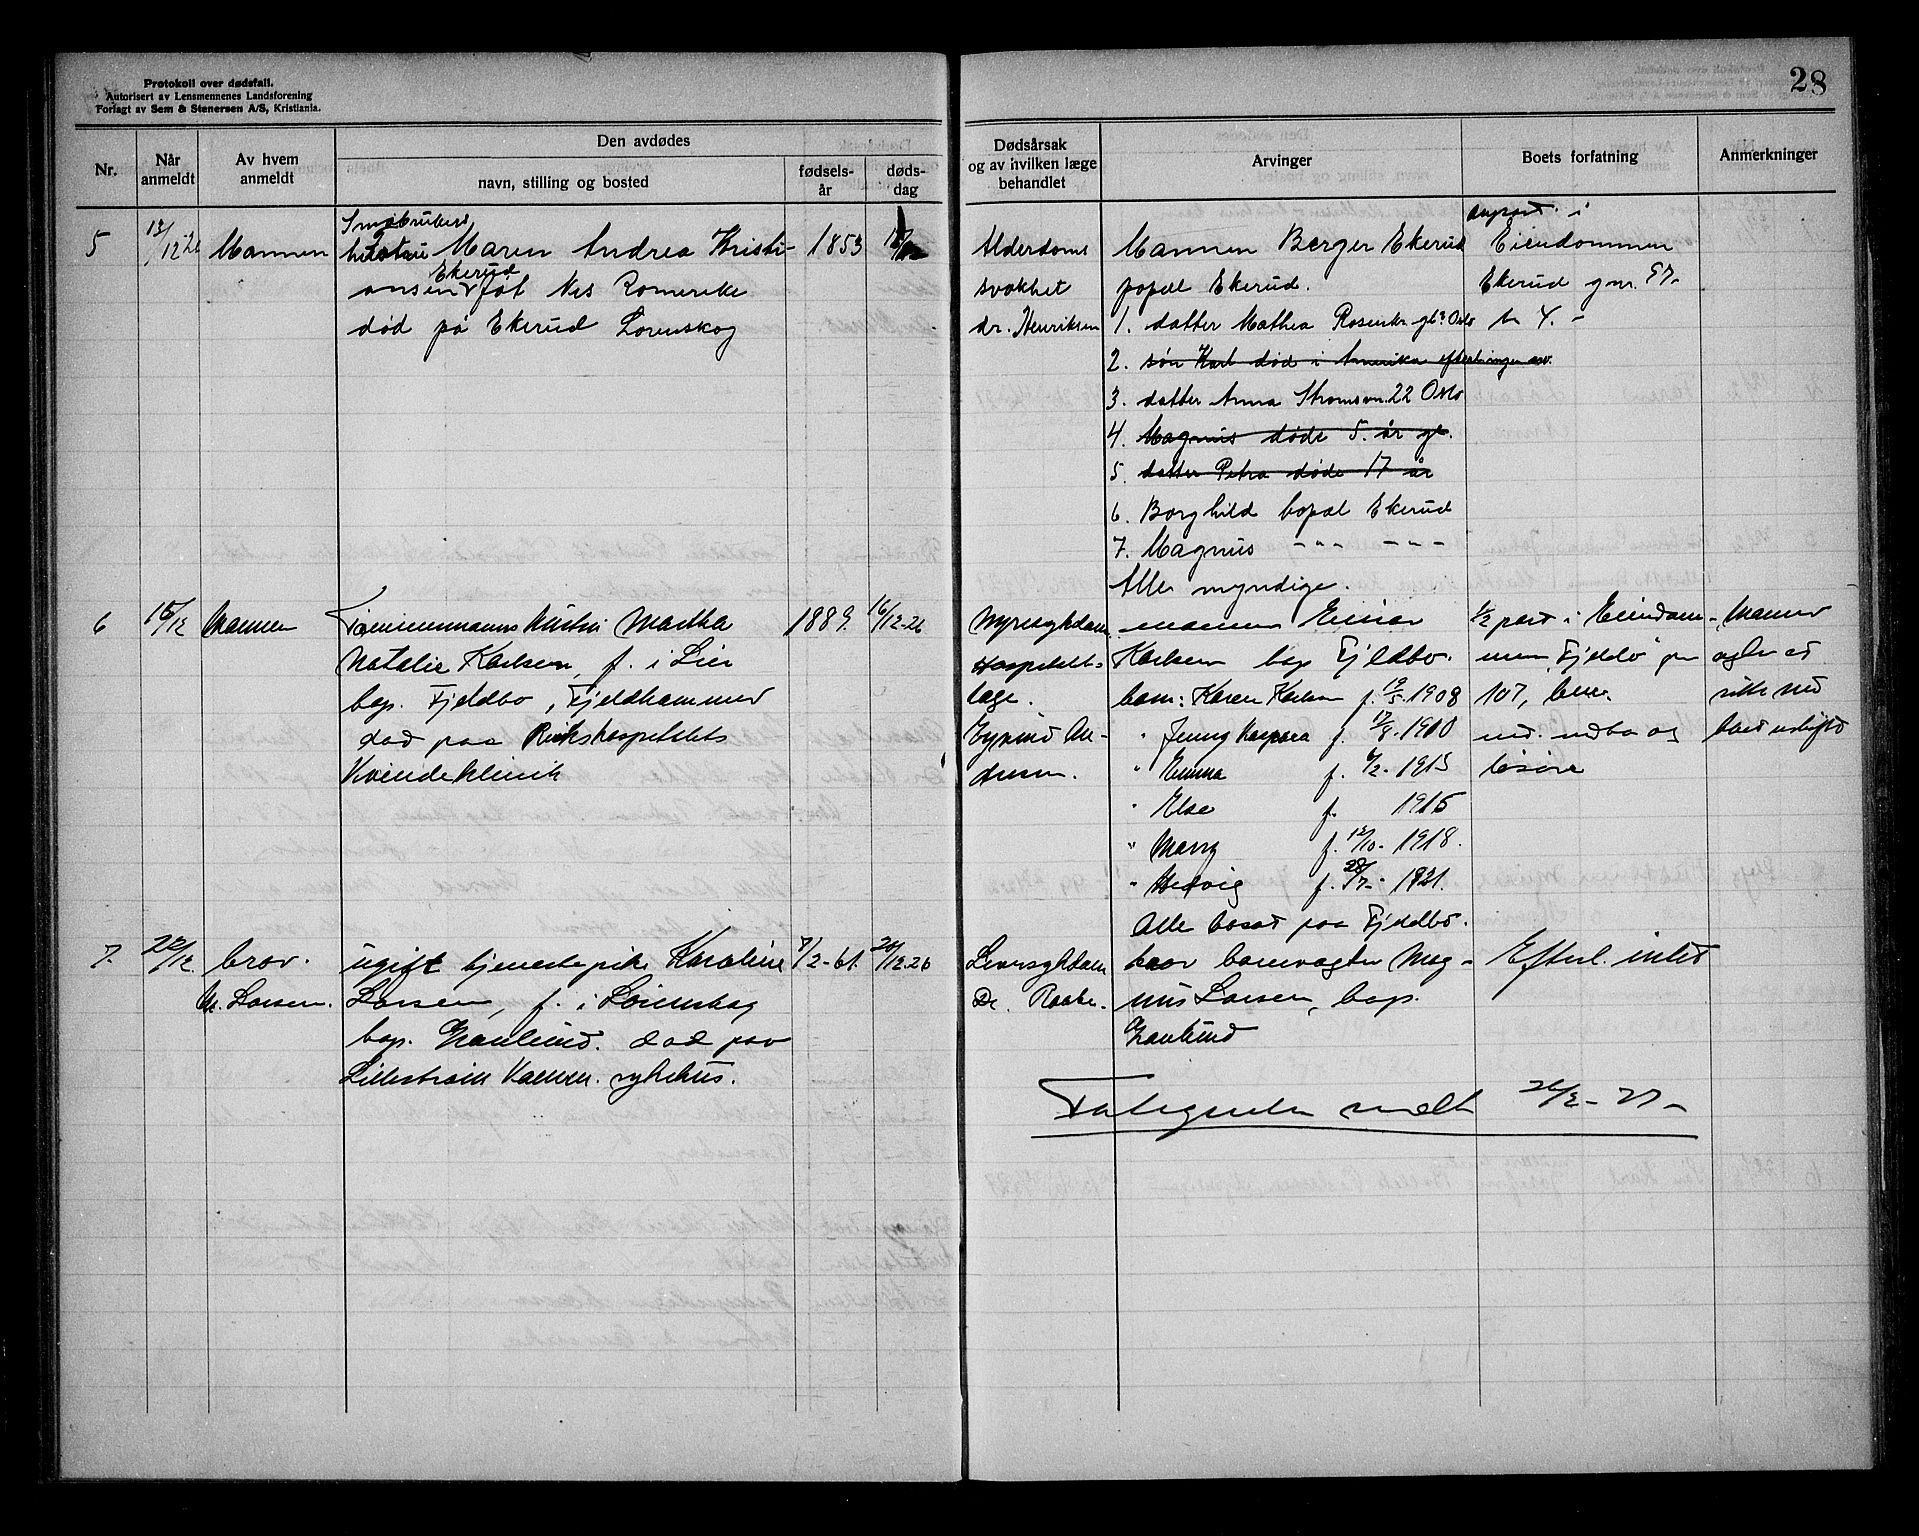 Protokoll over dødsfall.
Autorisert av Lensmennenes Landsforening
Forlagt av Sem & Stenersen A/S, Kristiania.
28
Nr.
Når anmeldt
Av hvem anmeldt
Den avdødes
navn, stilling og bosted
fødsels-år
døds-dag
Dødsårsak og av hvilken læge behandlet
Arvinger
Boets forfatning
Anmerkninger
5
13/12 26
Mannen
Småbruker
hustru Maren Andrea Kristi-
ansen Ekerud føt Nes Romerike
død på Ekerud Lørenskog
1853
Alderdoms
svakhet
dr. Henriksen
Mannen Berger Ekerud
bopæl Ekerud.
1. datter Mathea Rosenkr. gt Oslo
2. søn Karl død i Amerika
3. datter Anna Strømsvn. 22 Oslo
4. Magnus døde 5. år gl.
5. datter Petra døde 17 år
6. Borghild bopæl Ekerud
7. Magnus -"- -"-
Alle myndige.
i
Eiendommen
Ekerud gnr. 97
bn 4. -
6
15/12
Mannen
Tømmermanns hustru Martha
Natalie Karlsen, f. i Lier
bop. Fjeldbo, Fjeldhammer
død paa Rikshospitalets
Kvindeklinik
1889.
16/12-26
Nyresykdom
Hospitals-
læge.
Eyvind An-
dresen.
manden Einar
Karlsen bop Fjeldbo.
barn: Karen Karlsen f. 19/5-1908
" Jenny Kaspara f. 17/8-1910
" Emma f. 6/2-1913
" Else f. 1915
" Marry f. 12/10-1918.
" Hedvig f. 28/7-1921.
Alle bosat paa Fjeldbo.
1/2 part i Eiendom-
men Fjeldbo gnr
107, bnr.
ind. indbo og
løsøre
Manden
agter at
sitte med
boet uskiftet
7.
22/12.
bror.
M. Larsen.
ugift tjenestepike Karoline
Larsen, f. i Lørenskog
bop. Granlund. død paa
Lillestrøm Kommun. sykehus.
7/2-61.
20/12.26
Leversykdom
Dr. Raabe.
bror banevogter Mag-
nus Larsen, bop.
Granlund
Efterl. intet